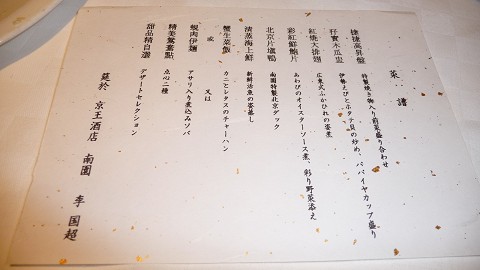 菜譜
捷捷高昇盤
特製焼き物入り前菜盛り合わせ
仔實木瓜盅
伊勢えびとホタテ貝の炒め、パパイヤカップ盛り
紅焼大排翅
広東式ふかひれの姿煮
彩紅鮮鮑片
あわびのオイスターソース煮、彩り野菜添え
北京片爐鴨
南園特製北京ダック
清蒸海上鮮
新鮮活魚の姿蒸し
蟹生菜飯
カニとレタスのチャーハン
或
又は
蜆肉伊麺
アサリ入り煮込みソバ
精美鴛鴦點
点心二種
甜品精自選
デザートセレクション
筵於 京王酒店 南園 李国超